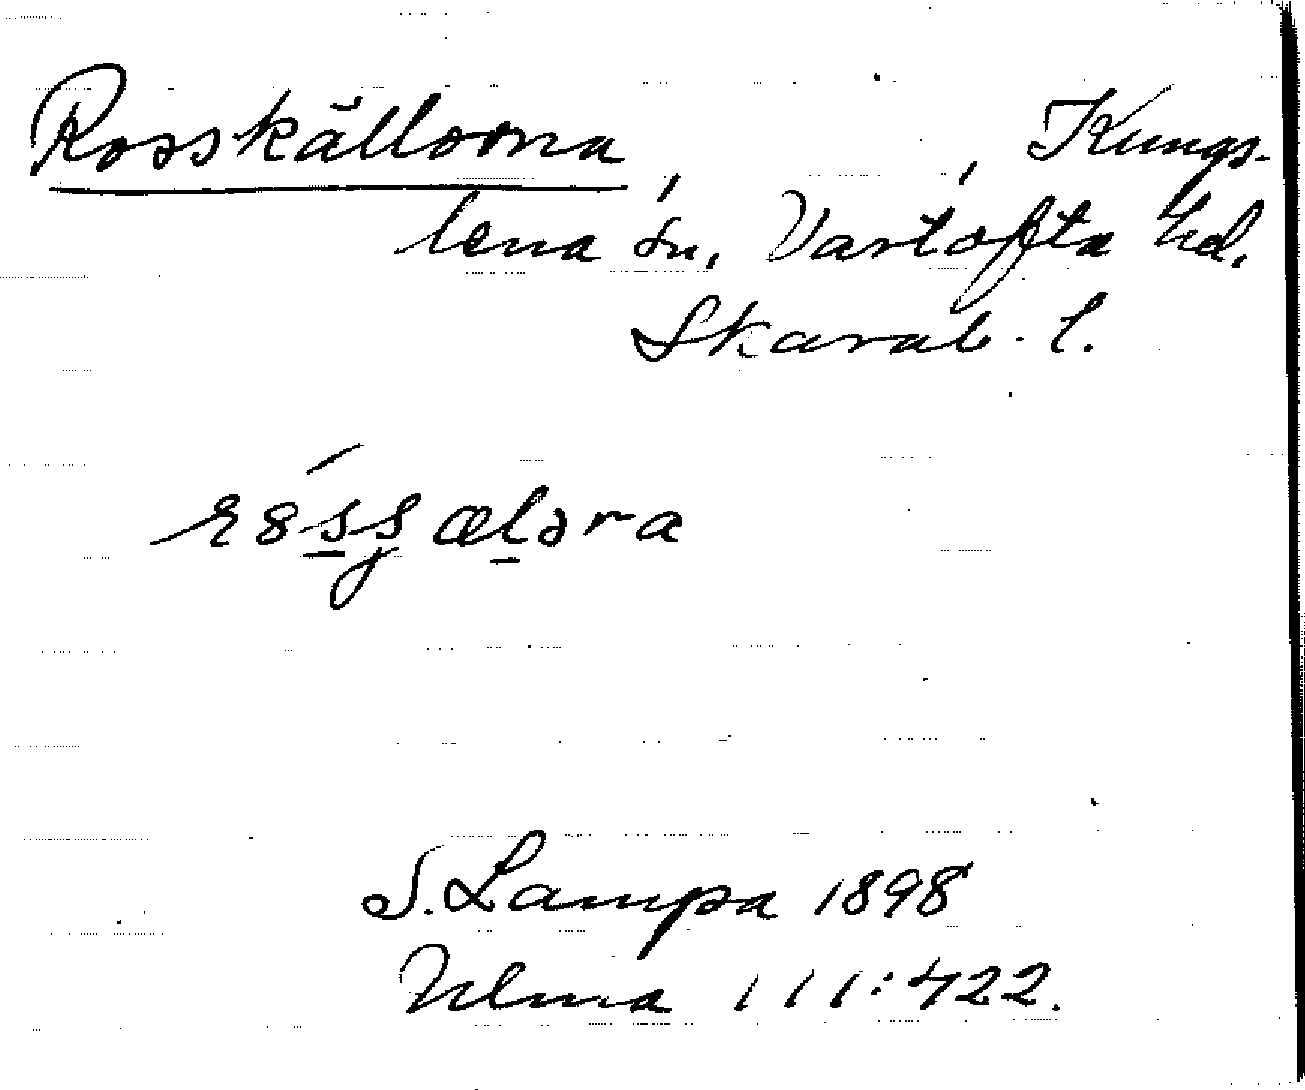 Rosskällorna, , Kungs-
lena sn, Vartofta hd.
Skarab. l.
S. Lampa 1898
Ulma 111:422.